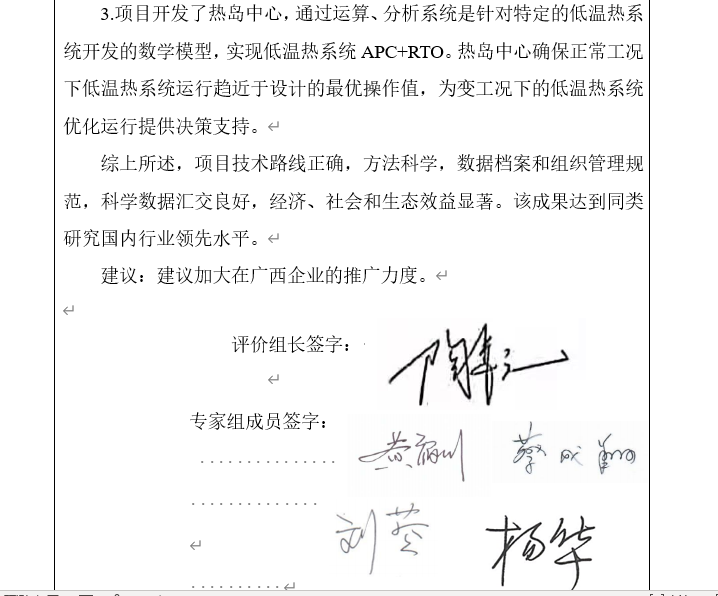 3.项目开发了热岛中心，通过运算、分析系统是针对特定的低温热系
统开发的数学模型，实现低温热系统 APC+RTO。热岛中心确保正常工况
下低温热系统运行趋近于设计的最优操作值，为变工况下的低温热系统
优化运行提供决策支持。
综上所述，项目技术路线正确，方法科学，数据档案和组织管理规
范，科学数据汇交良好，经济、社会和生态效益显著。该成果达到同类
研究国内行业领先水平。
建议：建议加大在广西企业的推广力度。
评价组长签字：
专家组成员签字：
蔡成
刘
杨华